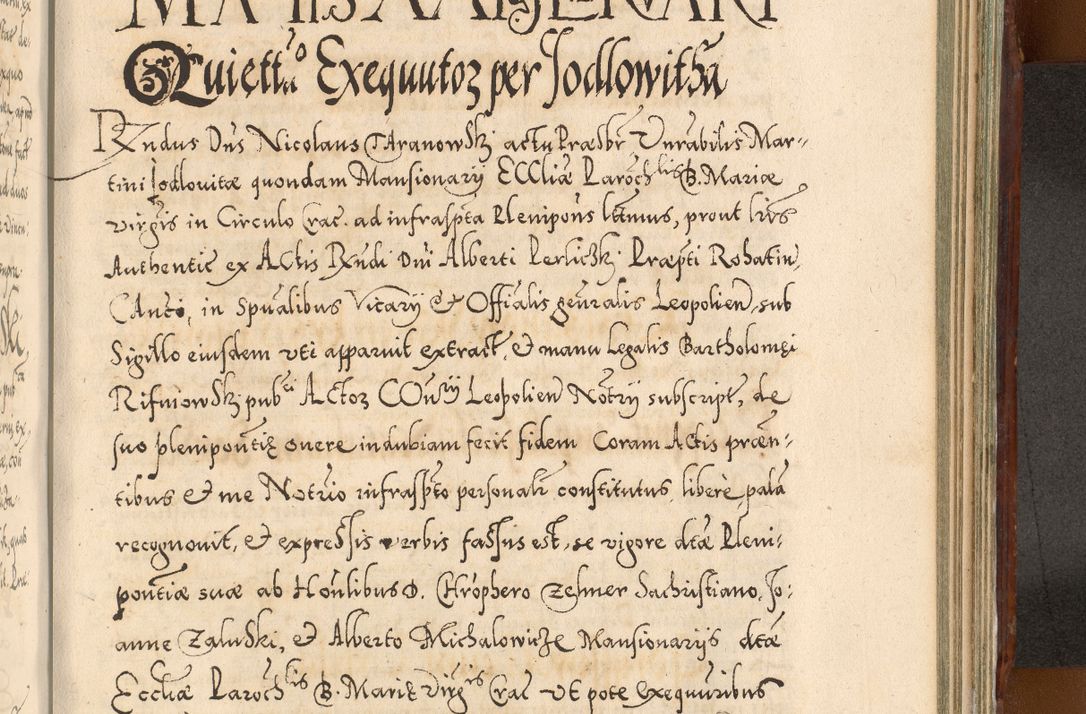 Quiett:o Exequutoꝝ per Jodlowitha
Rndus Dns Nicolaus Taranowski actu Præsbr Venrabilis Mar-
tini Jodlouitæ quondam Mansionarij Eccliæ Paroch:lis B. Mariæ
virgis in Circulo Crac. ad infraspta Plenipons ltimus, prout lrrs
Authentic ex Actis Rndi Dni Alberti Perliczki Præpti Rohatin,
Canco, in Spualibus Vicarij & Offialis genralis Leopolien, sub
Sigillo eiusdem uti apparuit extract, & manu Legalis Bartholomęi
Rifniowski pub:ci Actoꝝ Con:rij Leopolien Notrij subscript, de
suo plenipontię onere indubiam fecit fidem Coram Actis præn-
tibus & me Notrio infraspto personalr constitutus libere, pala
recognouit, & expressis verbis fassus est, se vigore dtæ Pleni-
pontiæ suæ ab Honlibus D. Chrophero Zelmer Sachristiano, Jo:
anne Zaluski, & Alberto Michalowicze Mansionarijs dtæ
Eccliæ Paroch:lis B. Mariæ Virg:is Crac ut pote exequuribus